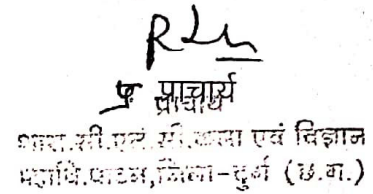 प्र. प्राचार्य
शास.सी.एल.सी.कला एवं विज्ञान
महावि.पाटन,जिला-दुर्ग (छ.ग.)